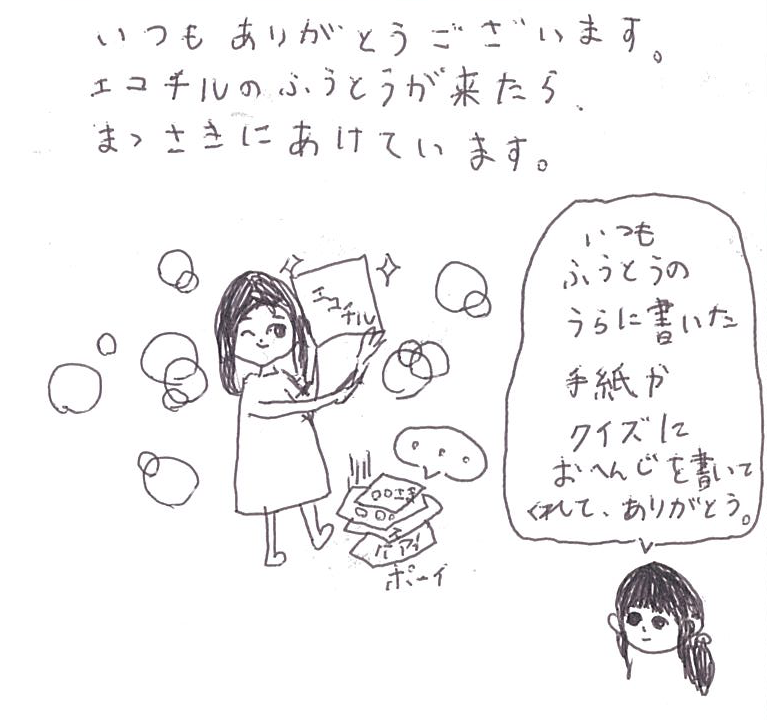 いつもありがとうございます。
エコチルのふうとうが来たら、
まっさきにあけています。
エコチル
いつも
ふうとうの
うらに書いた
手紙か
クイズに
おへんじを書いて
くれて、ありがとう。
・・・
ポーイ